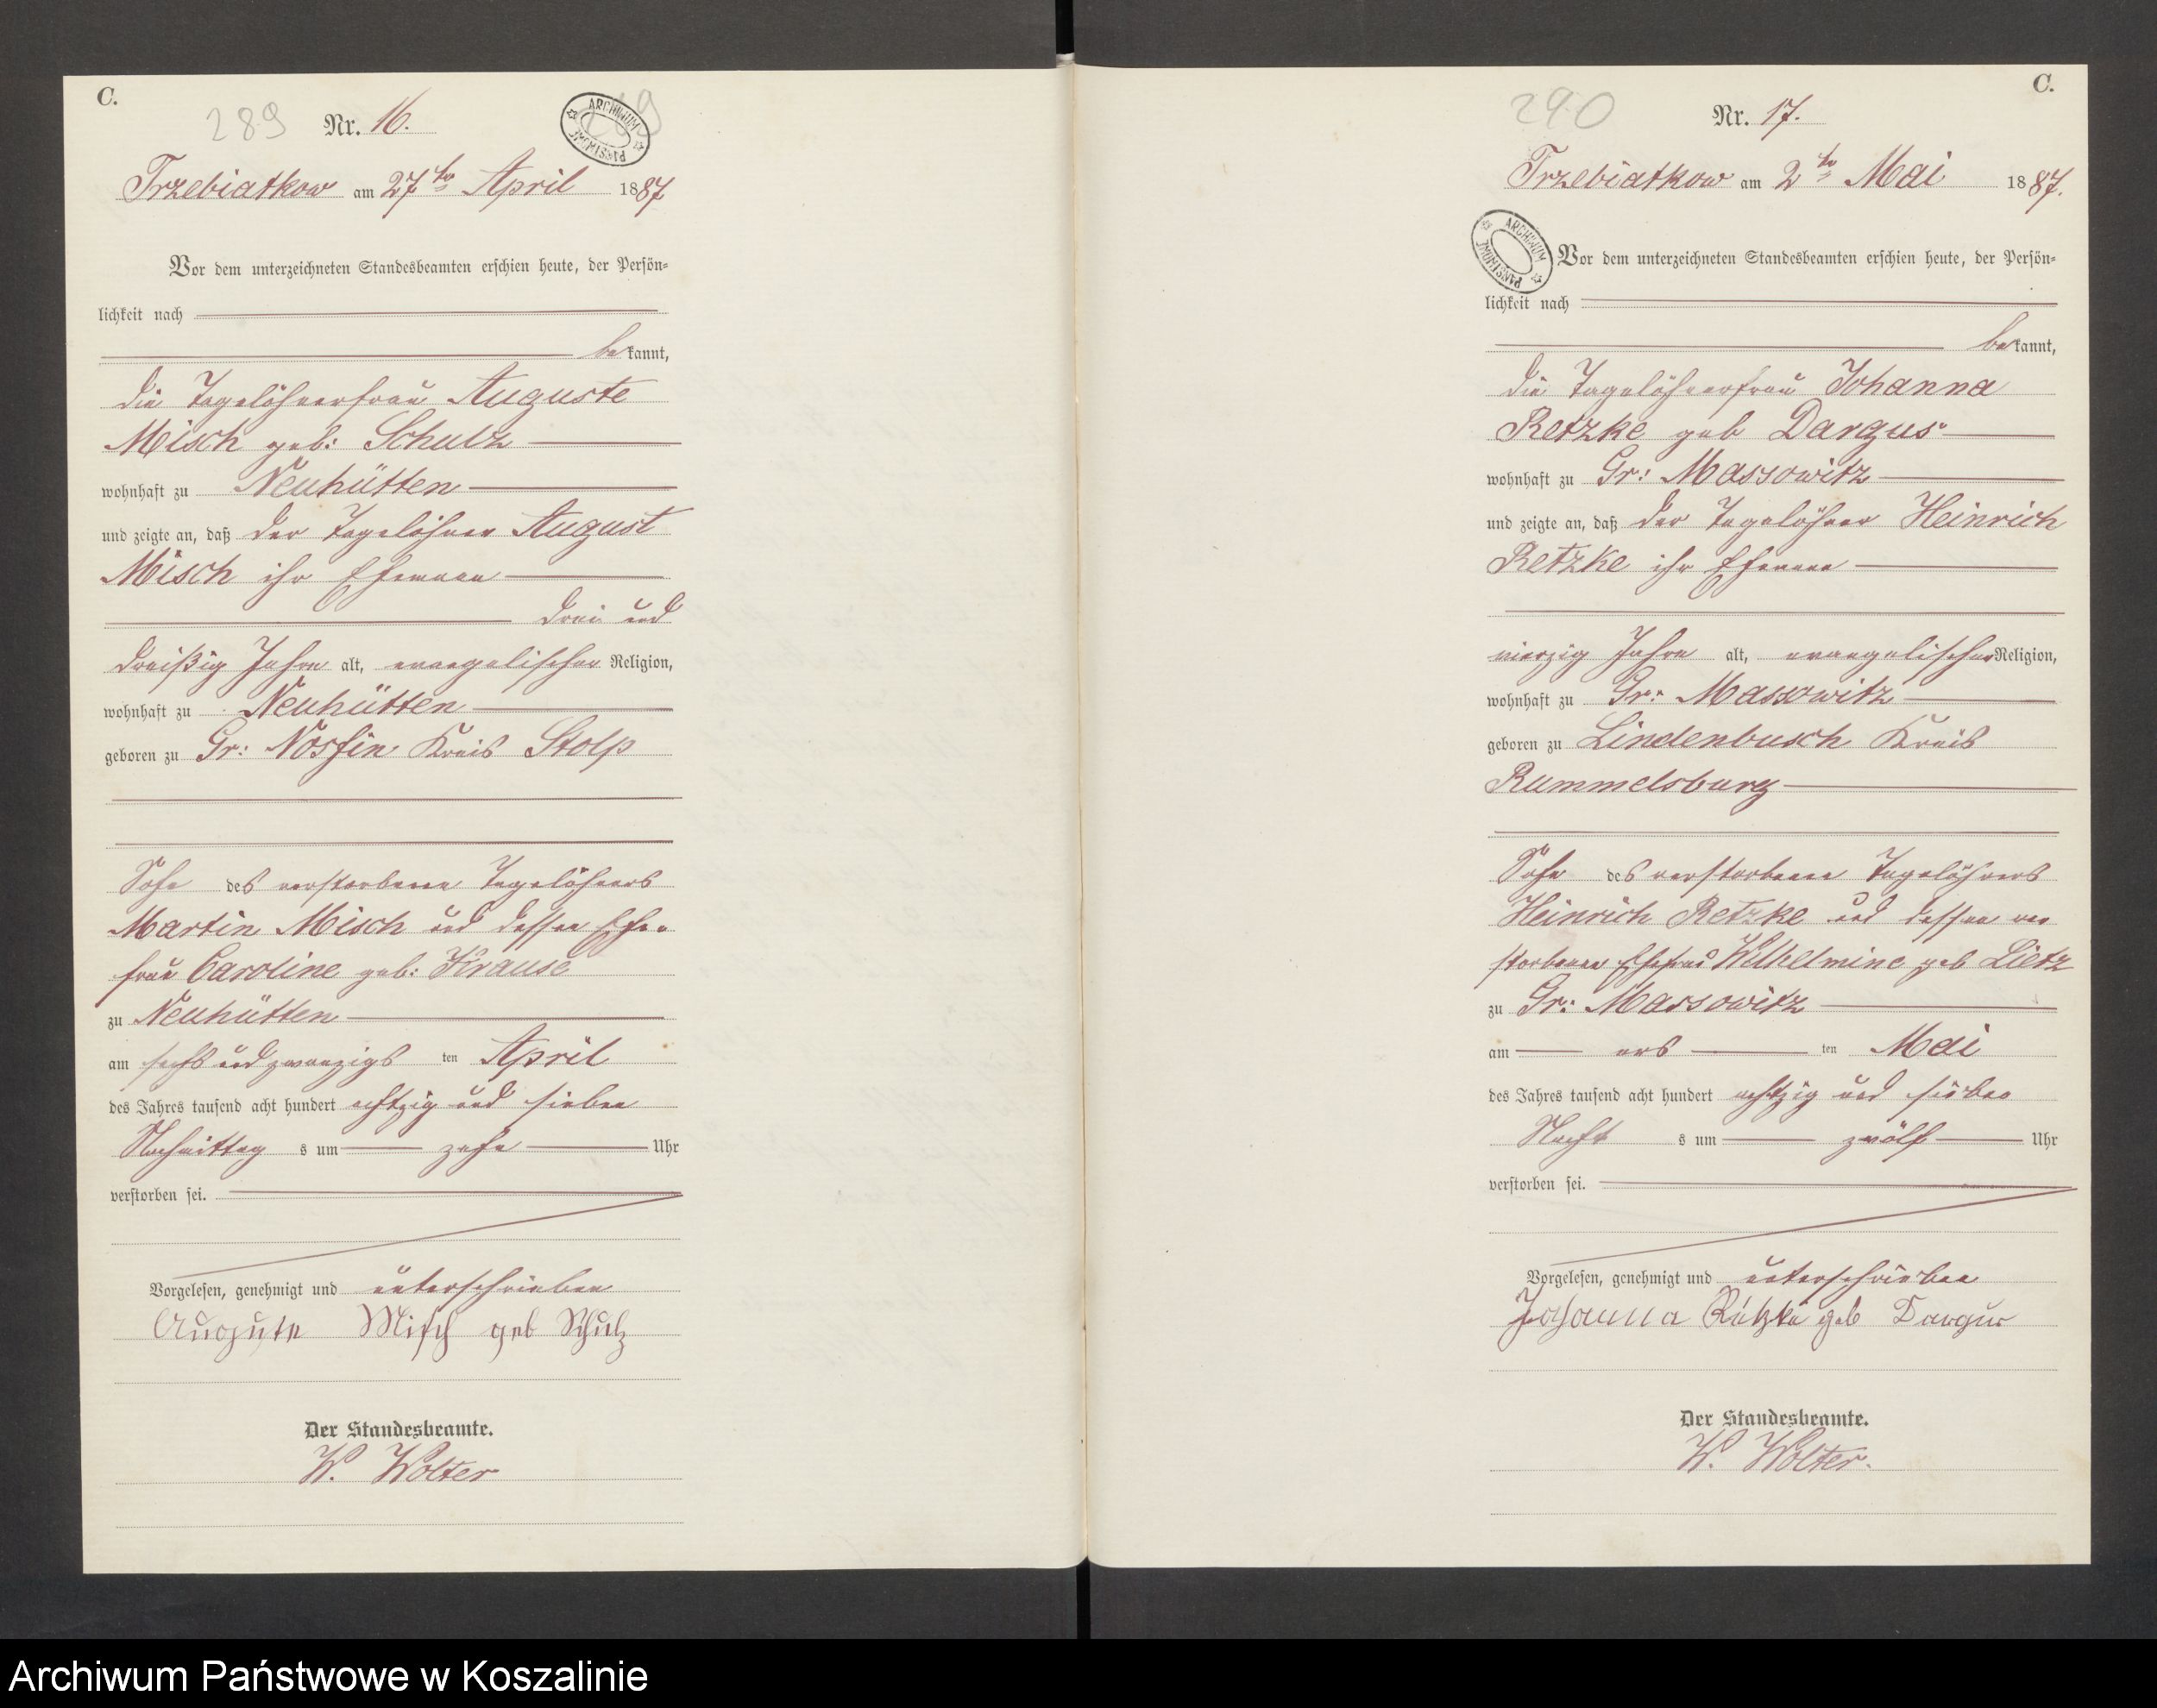 C.
289
Nr. 16.
ARCHIWUM PAŃSTWOWE
Trzebiatkow am 27ten April 1887
Vor dem unterzeichneten Standesbeamten erschien heute, der Persön=
lichkeit nach
bekannt,
die Tagelöhnerfrau Auguste
Misch geb: Schulz
wohnhaft zu Neuhütten
und zeigte an, daß der Tagelöhner August
Misch ihr Ehemann
drei und
dreißig Jahre alt, evangelischer Religion,
wohnhaft zu Neuhütten
geboren zu Gr: Nossin Kreis Stolp
Sohn des verstorbenen Tagelöhners
Martin Misch und dessen Ehe=
frau Caroline geb: Krause
zu Neuhütten
am sechs und zwanzigsten April
des Jahres tausend acht hundert achtzig und sieben
Nachmittags um zehn Uhr
verstorben sei.
Vorgelesen, genehmigt und unterschrieben
Auguste Misch geb Schulz
Der Standesbeamte.
W. Wolter
C.
290
Nr. 17.
Trzebiatkow am 2ten Mai 1887.
ARCHIWUM PAŃSTWOWE
Vor dem unterzeichneten Standesbeamten erschien heute, der Persön=
lichkeit nach
bekannt,
die Tagelöhnerfrau Johanna
Retzke geb Dargus
wohnhaft zu Gr: Massowitz
und zeigte an, daß der Tagelöhner Heinrich
Retzke ihr Ehemann
vierzig Jahre alt, evangelischer Religion,
wohnhaft zu Gr: Massowitz
geboren zu Lindenbusch Kreis
Rummelsburg
Sohn des verstorbenen Tagelöhners
Heinrich Retzke und dessen ver
storbenen Ehefrau Wilhelmine geb Lietz
zu Gr: Massowitz
am ersten Mai
des Jahres tausend acht hundert achtzig und sieben
Nachts um zwölf Uhr
verstorben sei.
Vorgelesen, genehmigt und unterschrieben
Johanna Retzke geb Dargus
Der Standesbeamte.
W. Wolter.
Archiwum Państwowe w Koszalinie